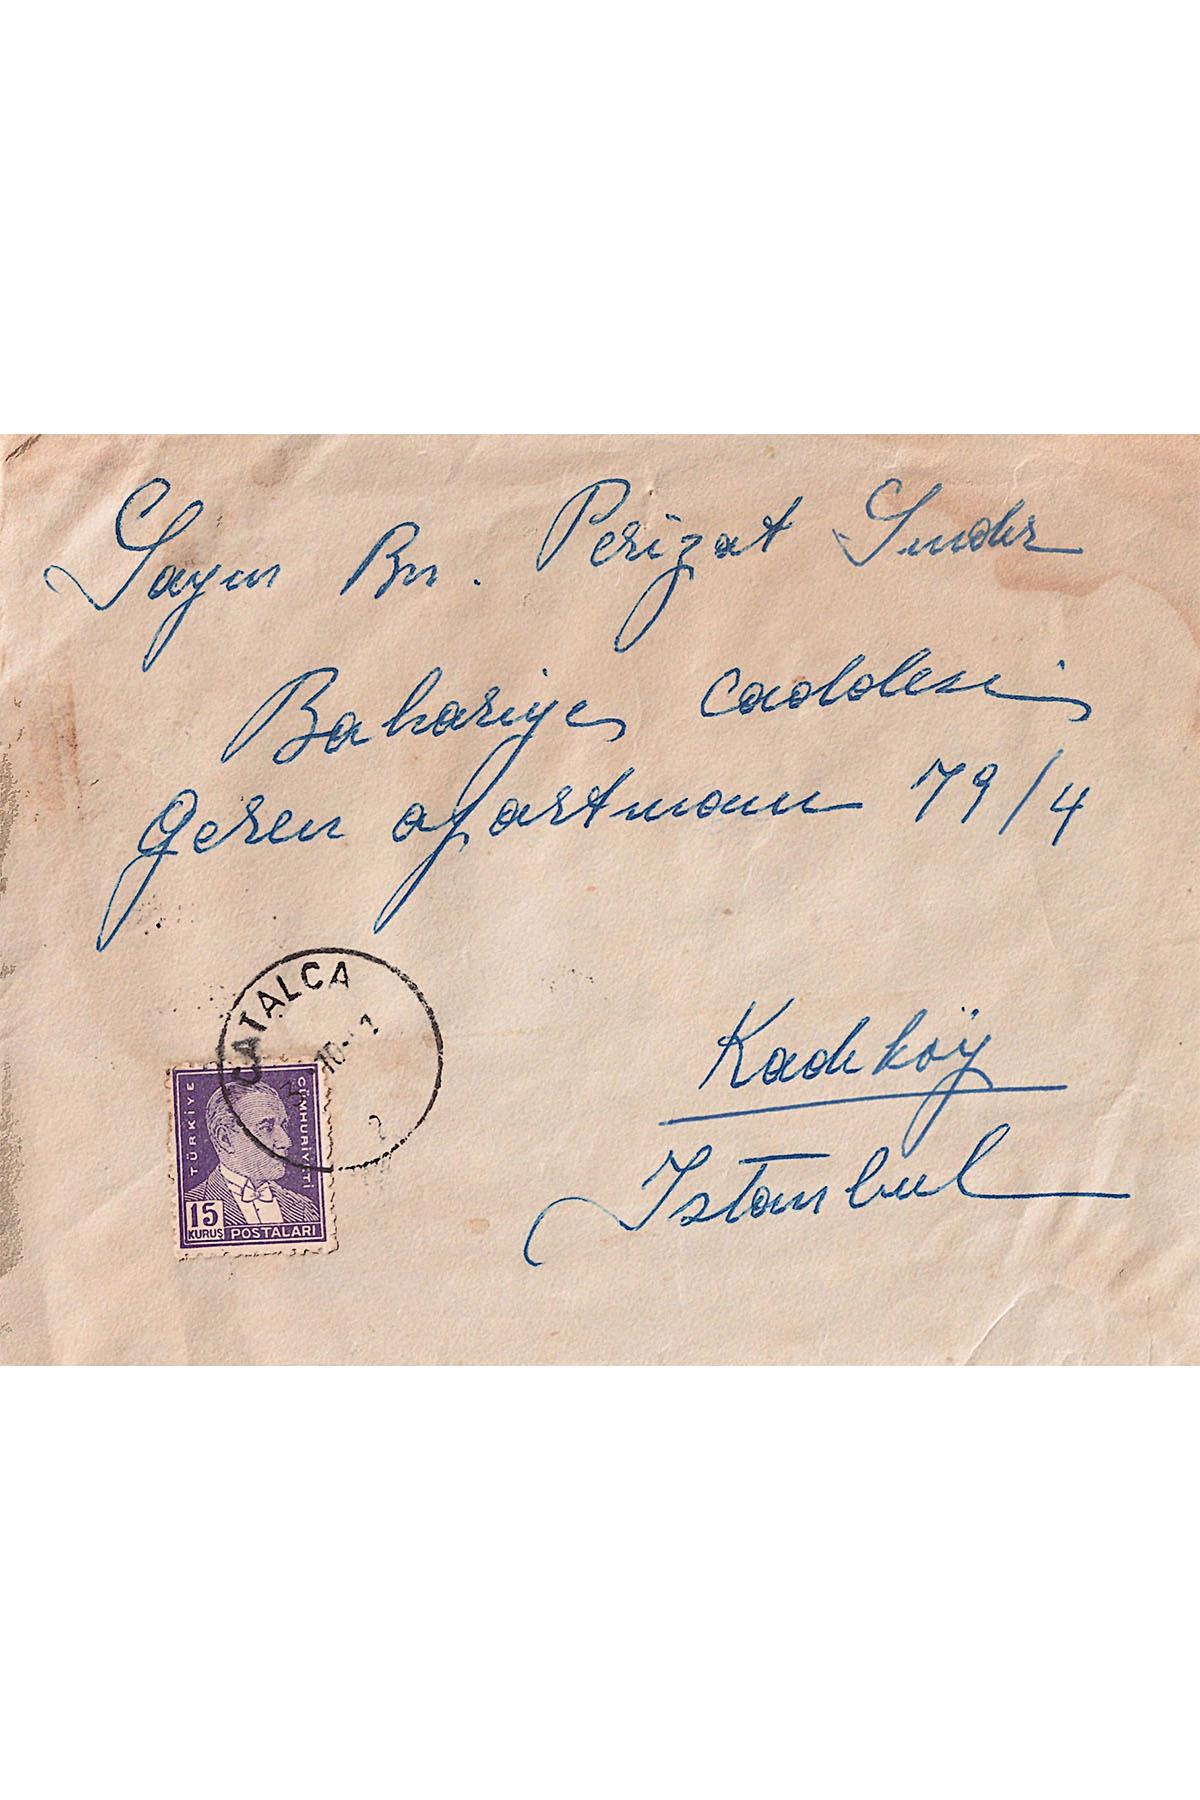 Sayın Bn. Perizat Sındır
Bahariye caddesi
Geren apartmanı 79/4
ÇATALCA
10
2
TÜRKİYE CÜMHURİYETİ
15
KURUŞ POSTALARI
Kadıköy
Istanbul